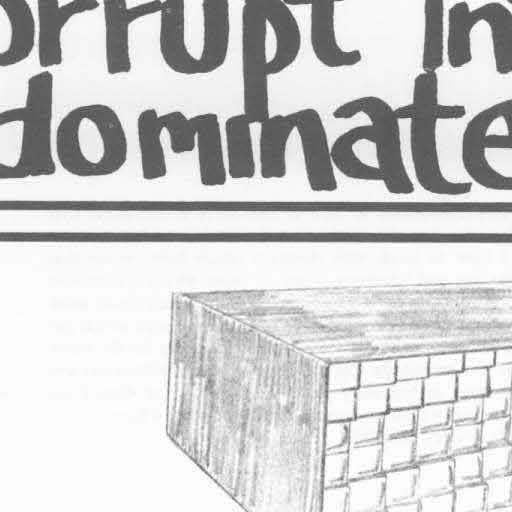 orrupt In
dominate